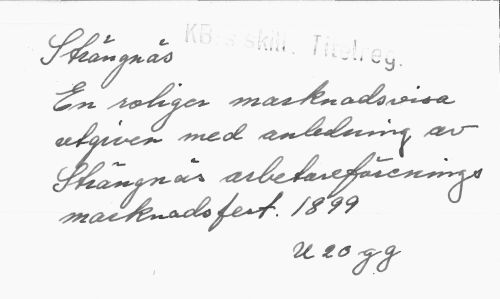 KB:s skill. Titelreg.
Strängnäs
En roliger marknadsvisa
utgiven med anledning av
Strängnäs arbetareförenings
marknadsfest. 1899
U 20 gg